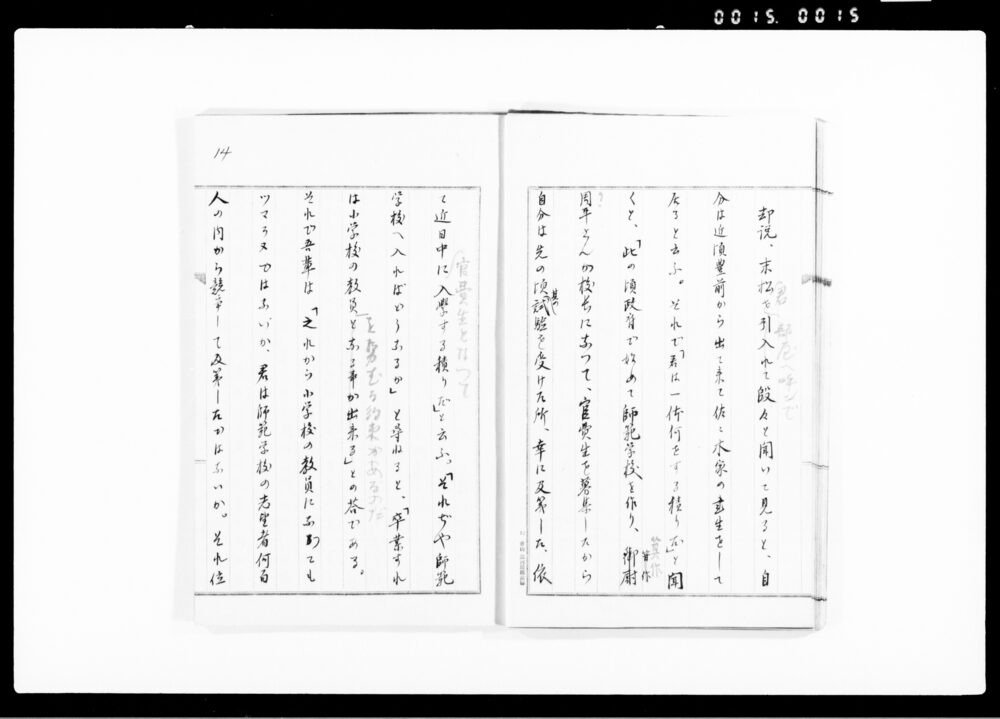 0015. 0015
却説、末松を引入れて段々と聞いて見ると、自
分は近頃豊前から出て来て佐々木家の書生をして
居ると云ふ。それで「君は一体何をする積りだ」と聞
くと、「此の頃政府で始めて師範学校を作り、御廚
箕作
周平さんが校長になつて、官費生を募集したから
自分は先の頃試験を受けた所、幸に及第した、依
14
て近日中に入学する積りだ」と云ふ、「それぢや師範
官費生となつて
学校へ入ればどうなるか」と尋ねると、「卒業すれ
は小学校の教員となる事が出来る」との答である。
それで吾輩は「之れから小学校の教員になつても
ツマラヌではないか、君は師範学校の志望者何百
人の内から競争して及第したではないか。それ位